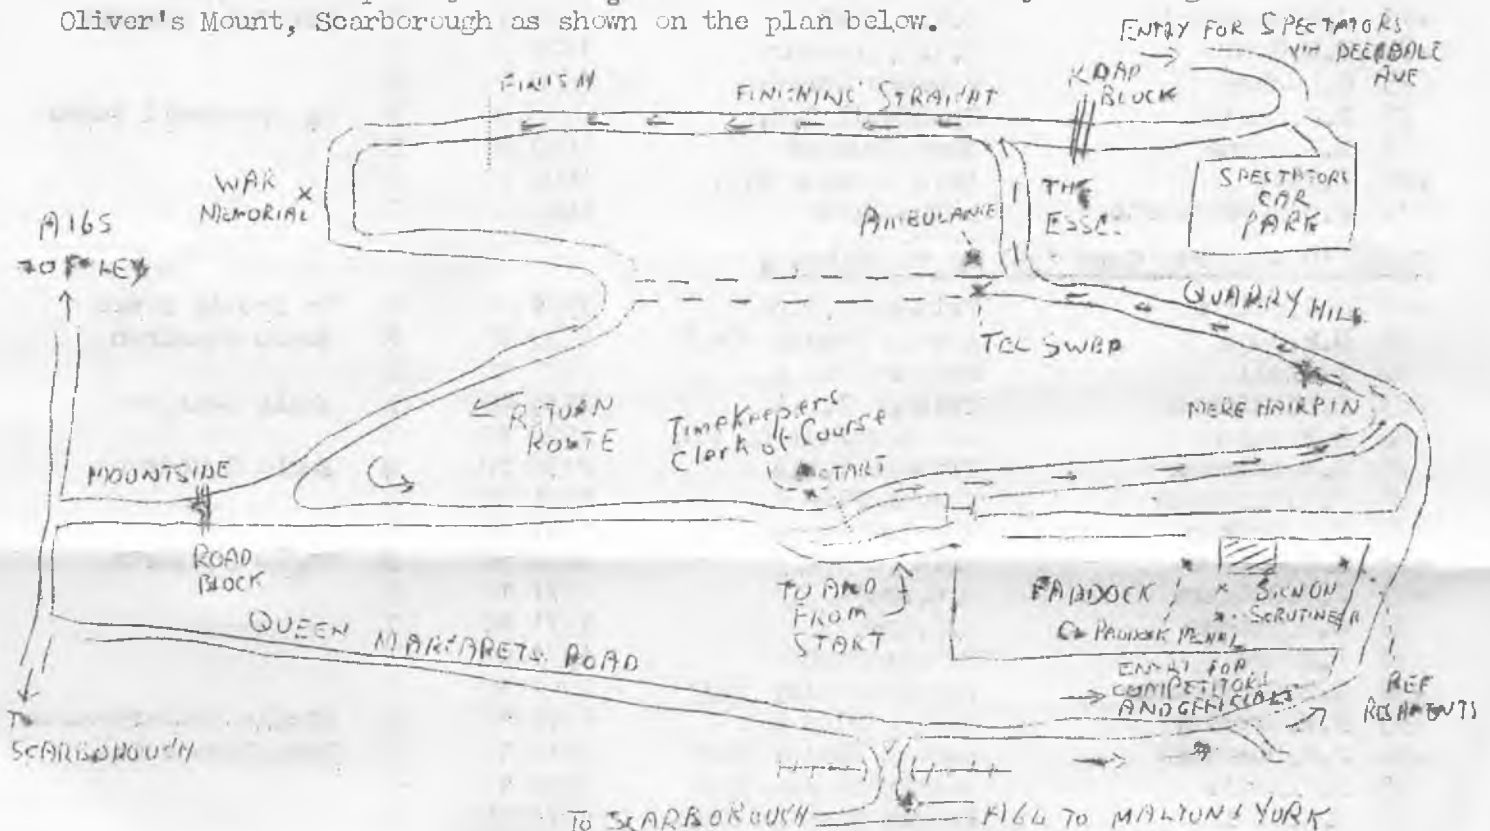 Oliver's Mount, Scarborough as shown on the plan below.
ENTRY FOR SPECTATORS
VIA DEEPDALE
AVE
FINISH
FINISHING STRAIGHT
ROAD
BLOCK
WAR
MEMORIAL
SPECTATORS
CAR
PARK
THE
ESSE.
AMBULANCE
A165
QUARRY HILL
TEL
MERE HAIRPIN
RETURN
ROUTE
Timekeepers
Clerk of Course
START
MOUNTSIDE
ROAD
BLOCK
TO AND
FROM
START
PADDOCK
SIGN ON
SCRUTINEER
QUEEN MARGARETS ROAD
ENTRY FOR
COMPETITORS
AND OFFICIALS
REF
RESHMENTS
TO
SCARBOROUGH
TO SCARBOROUGH
A64 TO MALTON & YORK